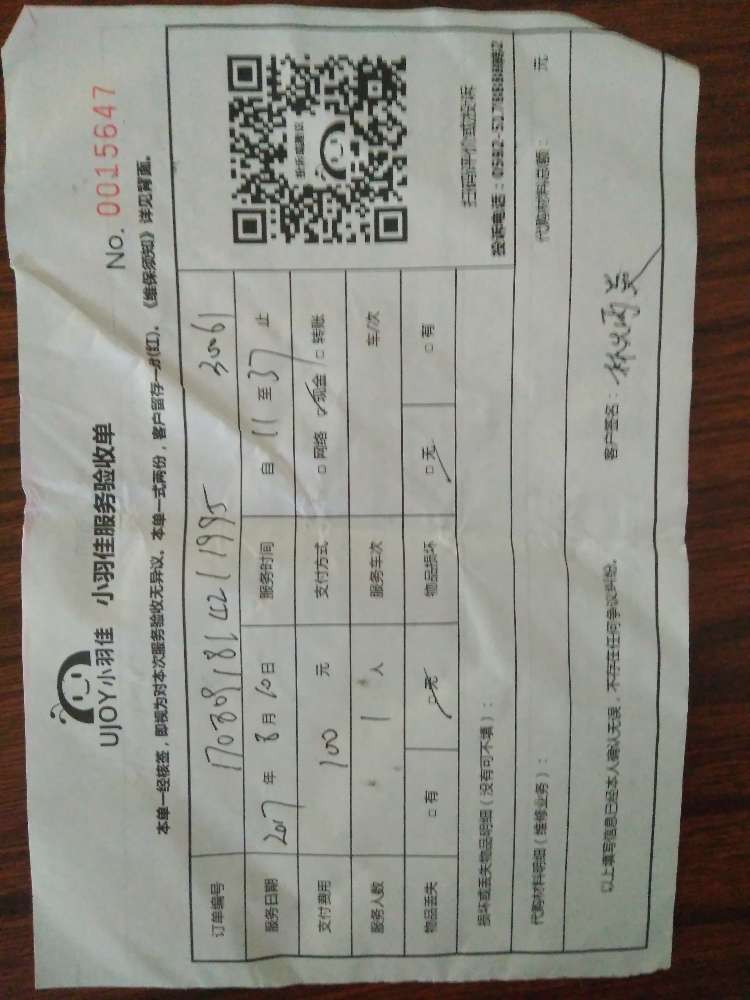 UJOY小羽佳 小羽佳服务验收单
No. 0015647
本单一经核签，即视为对本次服务验收无异议。本单一式两份，客户留存一份(红)。《维保须知》详见背面。
订单编号 3061
服务日期 2017 年 8 月 10 日 服务时间 自 11 至 37 止
支付费用 100 元 支付方式 □ 网络 ☑ 现金 □ 转账
服务人数 1 人 服务车次 车/次
物品丢失 □ 有 ☑ 无 物品损坏 ☑ 无 □ 有
扫码评价或投诉
投诉电话：
损坏或丢失物品明细（没有可不填）：
代购材料明细（维修业务）： 代购材料总额： 元
以上填写信息已经本人确认无误，不存在任何争议纠纷。 客户签名：